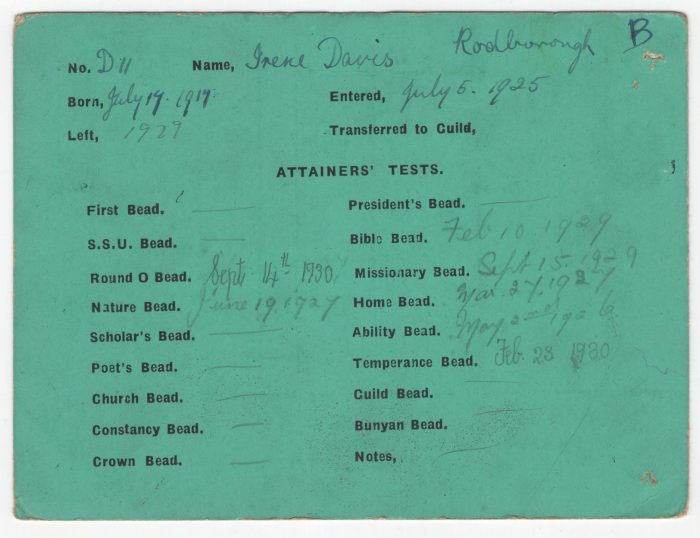 No. D 11 Name, Irene Davis Rodborough B
Born, July 17. 1917. Entered, July 5. 1925
Left, 1929 Transferred to Guild,
ATTAINERS' TESTS.
First Bead. — President's Bead. —
S.S.U. Bead. — Bible Bead. Feb 10. 1929
Round O Bead. Sept 14th 1930 Missionary Bead. Sept 15. 1929
Nature Bead. June 19. 1927 Home Bead. Mar. 27. 1927
Scholar's Bead. — Ability Bead. May 2nd 1926
Poet's Bead. — Temperance Bead. Feb. 23 1930
Church Bead. — Guild Bead. —
Constancy Bead. — Bunyan Bead. —
Crown Bead. — Notes, —